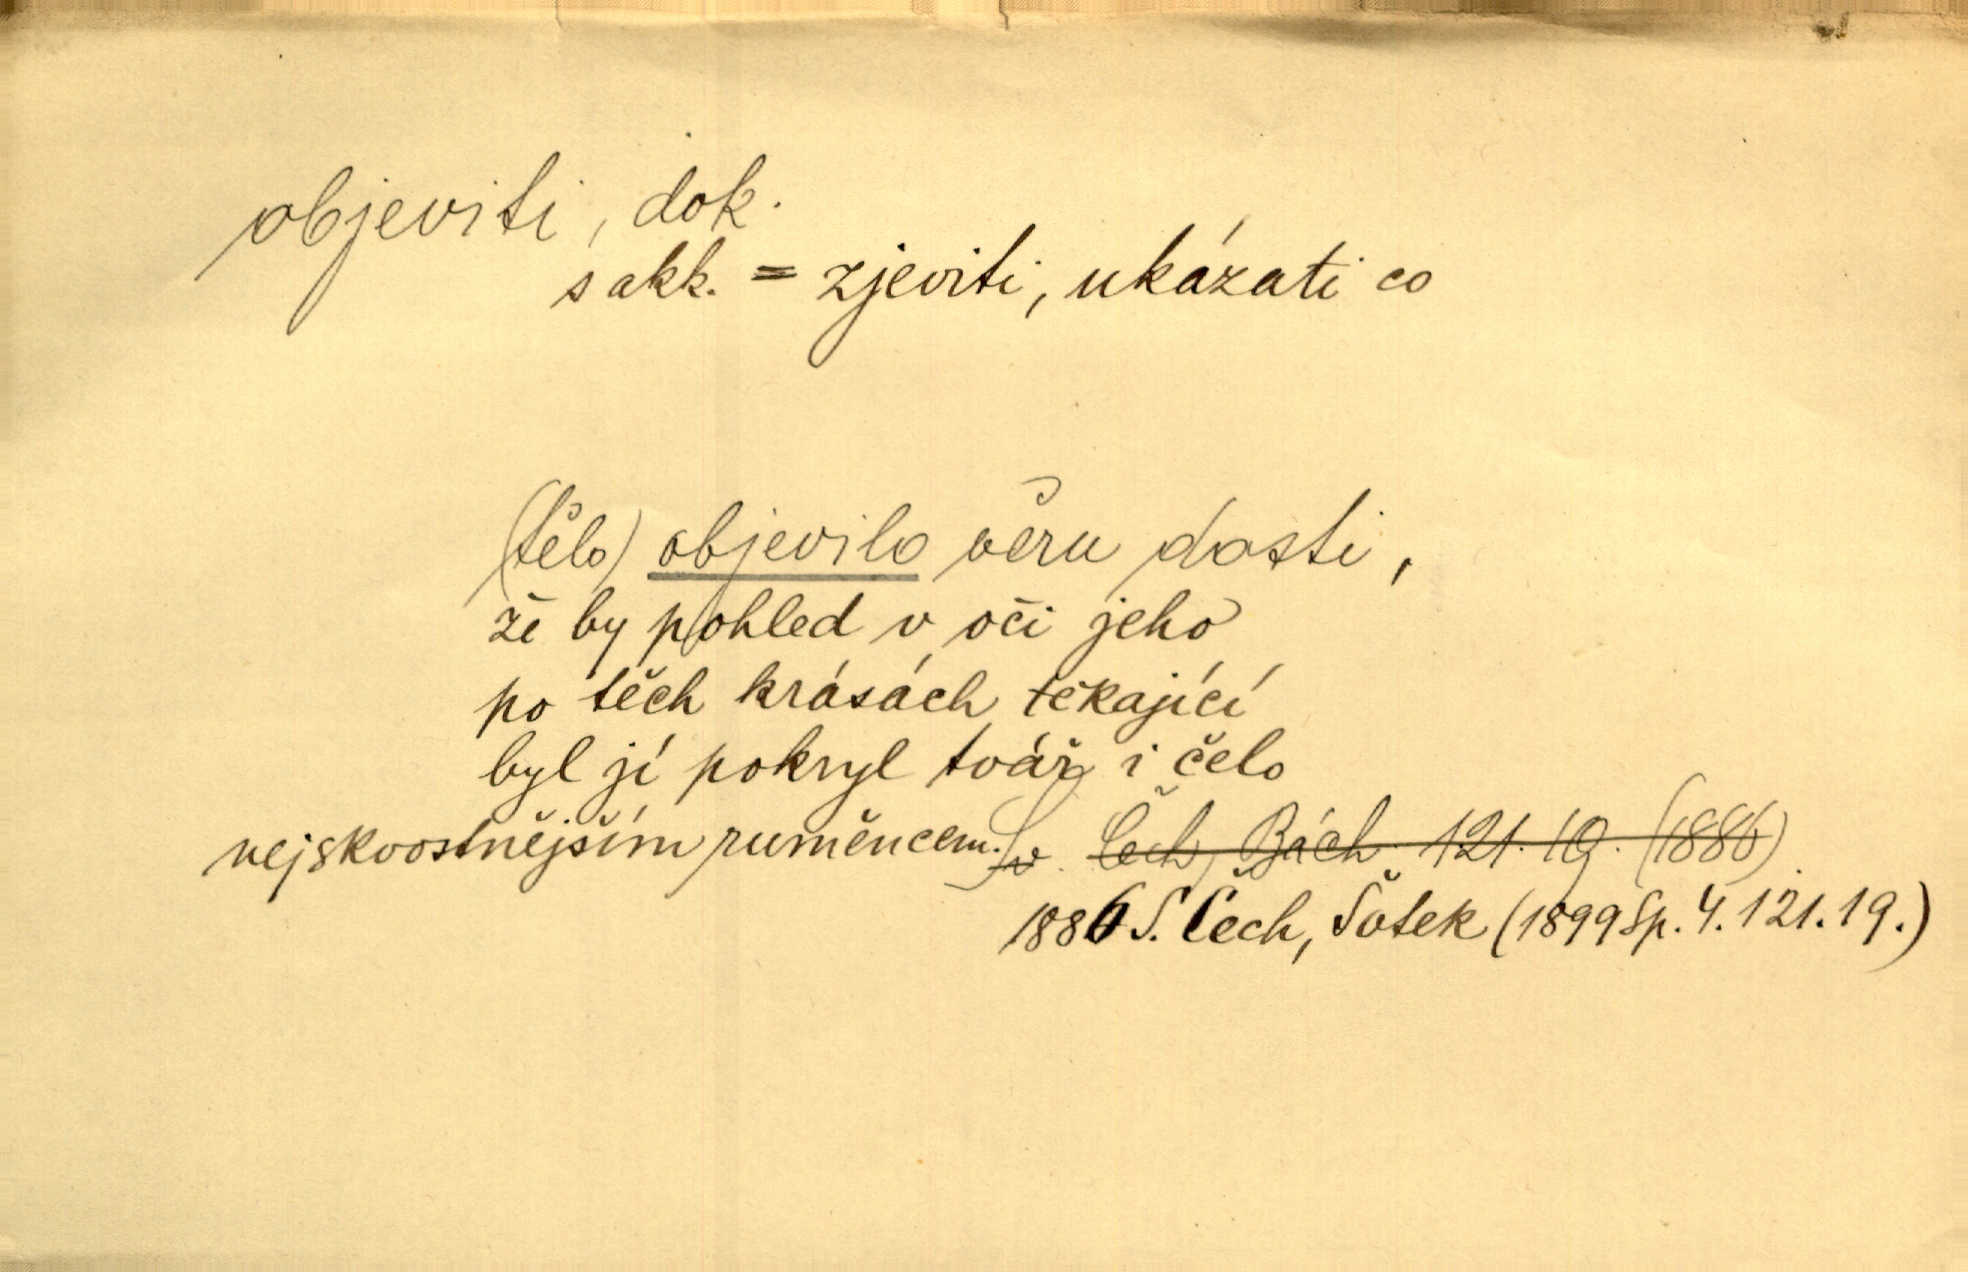 objeviti, dok.
s akk. = zjeviti, ukázati co
(tělo) objevilo věru dosti,
že by pohled v oči jeho
po těch krásách těkající
byl jí pokryl tvář i čelo
nejskvostnějším ruměncem. Sv. Čech, Bách. 121.19. (1886)
1886 S. Čech, Šotek (1899 Sp. 4. 121.19.)